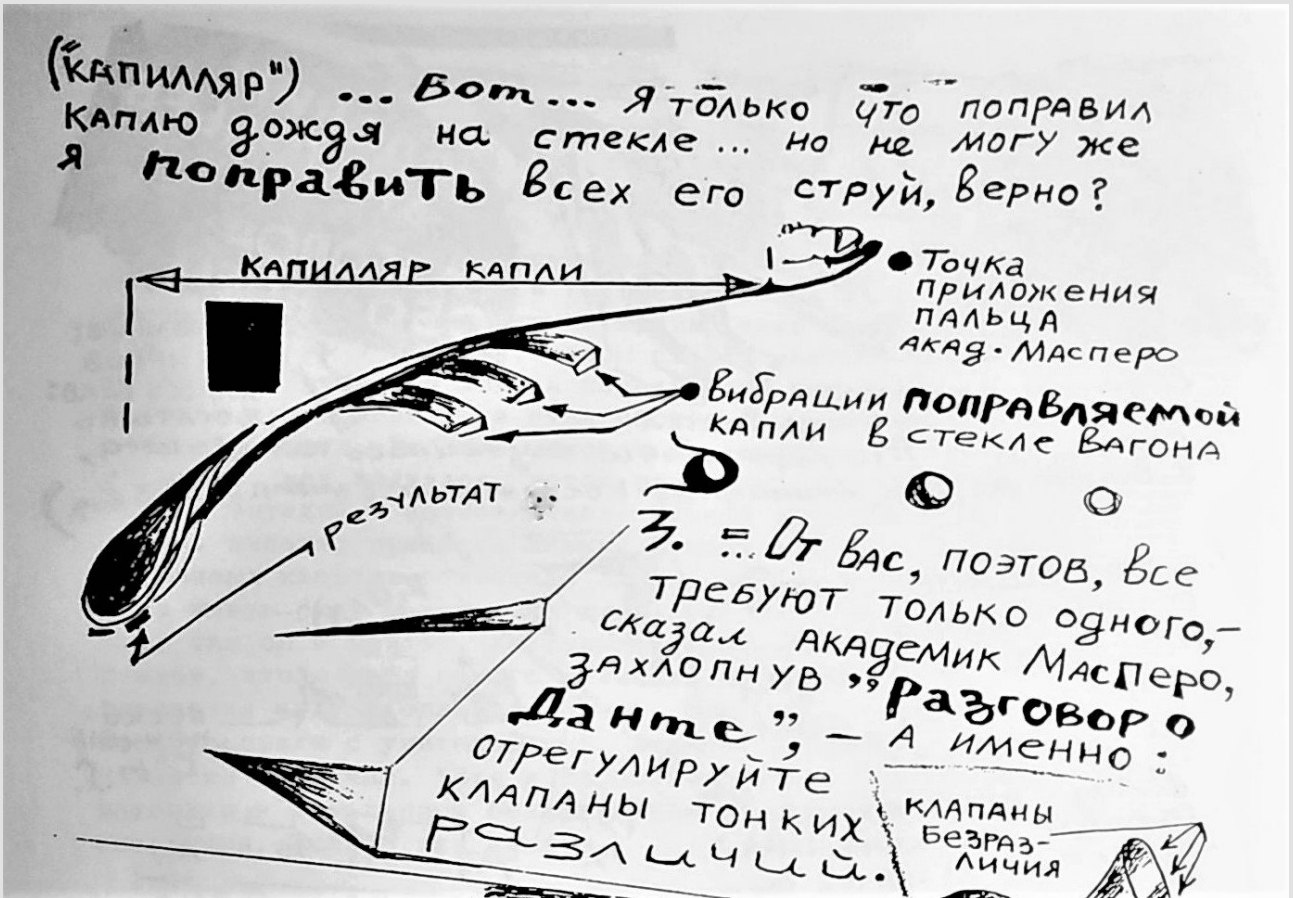 ("КАПИЛЛЯР") ... Вот... Я только что поправил
каплю дождя на стекле... но не могу же
я поправить всех его струй, верно?
КАПИЛЛЯР КАПЛИ
Точка
приложения
пальца
акад. Масперо
вибрации поправляемой
капли в стекле вагона
результат
3. = ...От вас, поэтов, все
требуют только одного,–
сказал академик Масперо,
захлопнув „Разговор о
Данте”, – а именно:
отрегулируйте
клапаны тонких
различий.
клапаны
безраз-
личия